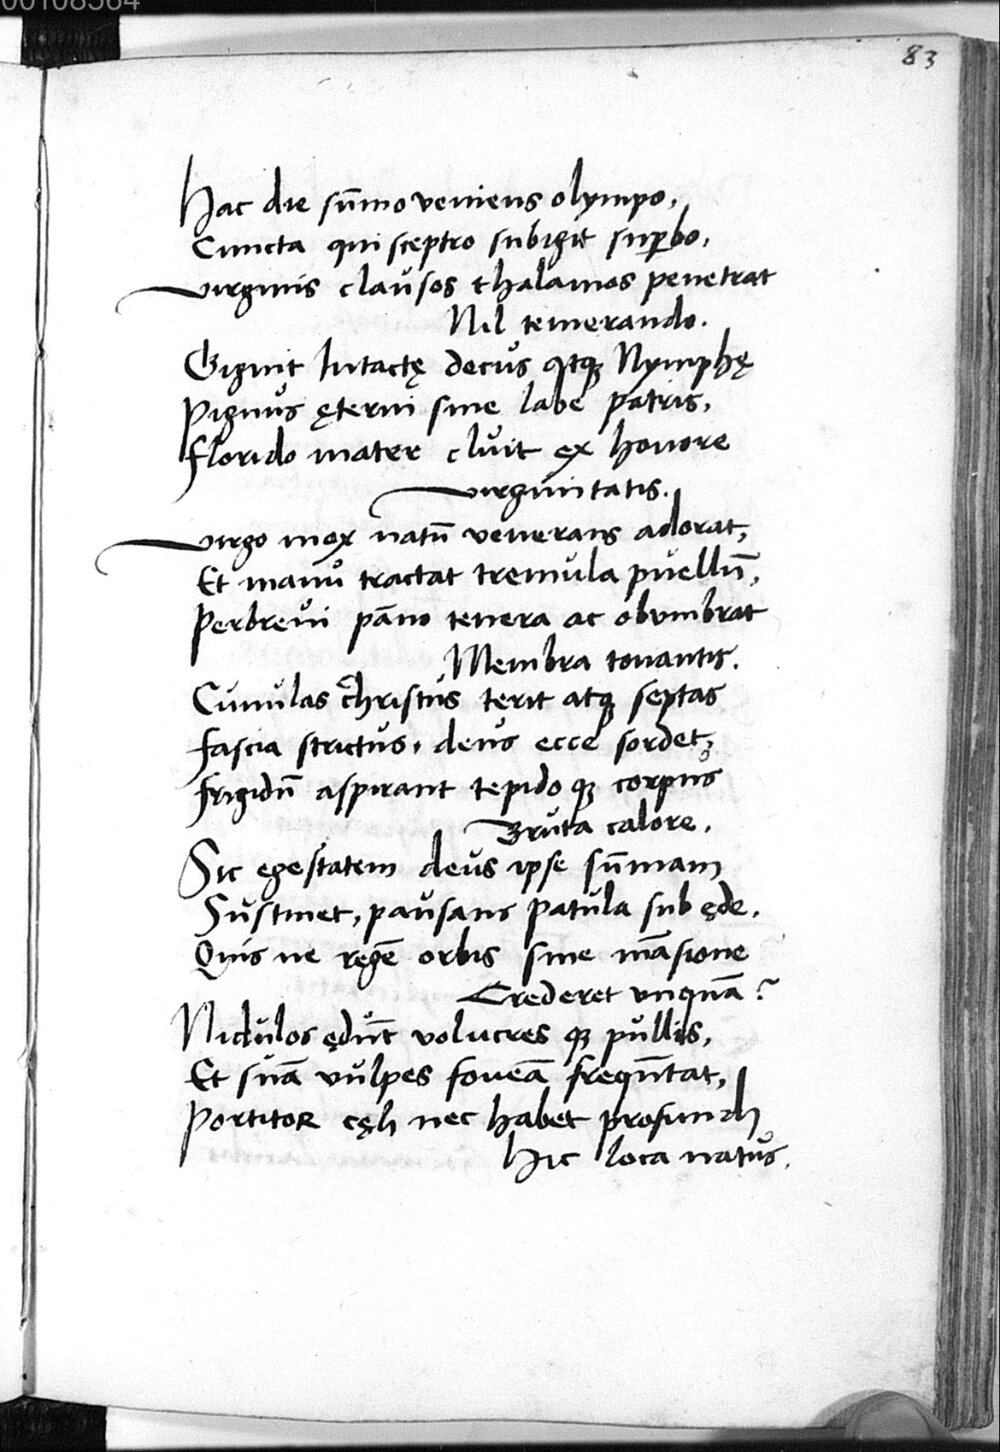 00108564
83
Hac die sūmo veniens olympo,
Cuncta qui sceptro subigit suꝑbo,
virginis clausos thalamos penetrat
Nil temerando.
Gignit Intactę decus atqꝫ Nymphę
Pignus ęterni sine labe patris,
Florido mater cluit ex honore
virginitatis.
virgo mox natū venerans adorat,
Et manu tractat tremula puellū,
Perbreui pāno tenera ac obvmbrat
Membra tonantis.
Cunulas christus terit atqꝫ septas
Fascia strictus, deus ecce sordet,
Frigidū aspirant tepido qꝫ corpus
Bruta calore.
Sic egestatem deus ipse sūmam
Sustinet, pausans patula sub ęde.
Quis ne regē orbis sine māsione
Crederet vnquā?
Nidulos ędūt volucres qꝫ pullis,
Et suā vulpes foueā frequētat,
Portitor cęli nec habet profundi
Hic loca natus.